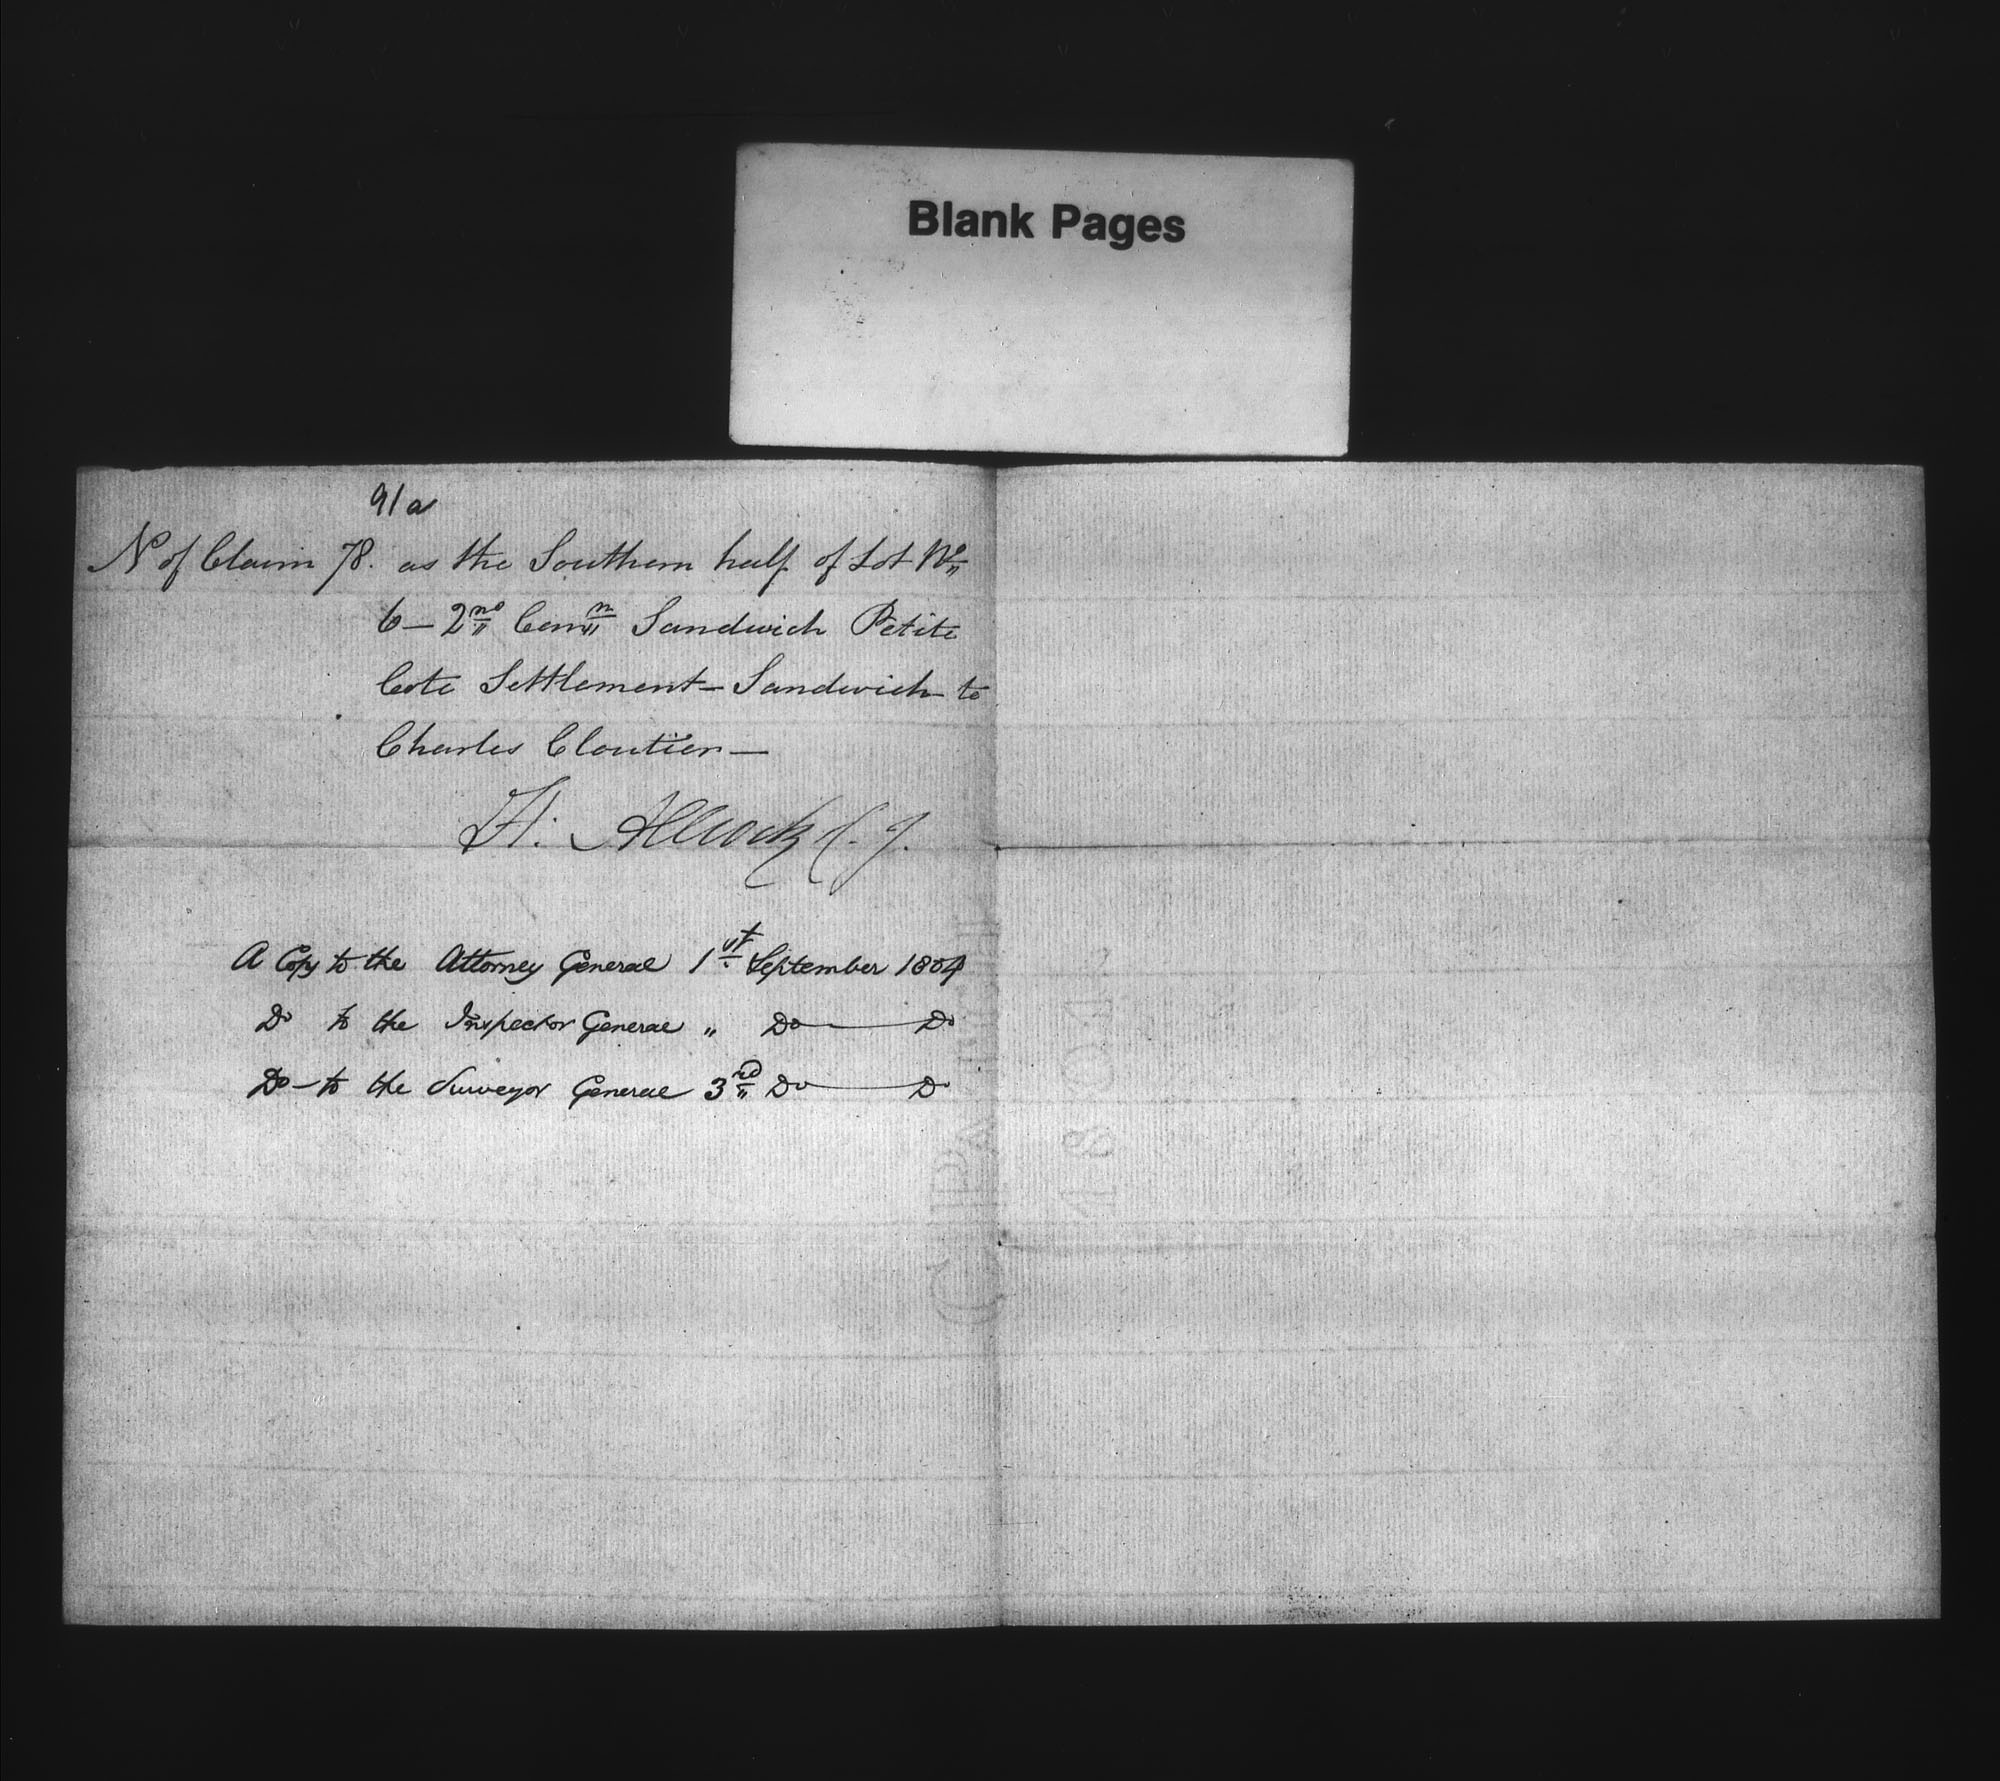 Blank Pages
91a
No of Claim 78. as the Southern half of Lot No
6 – 2nd Conn Sandwich Petite
Cote Settlement – Sandwich – to
Charles Cloutier –
H: Allcock C. J.
A Copy to the Attorney General 1st September 1804
Do to the Inspector General " Do — Do
Do – to the Surveyor General 3rd Do — Do
1804